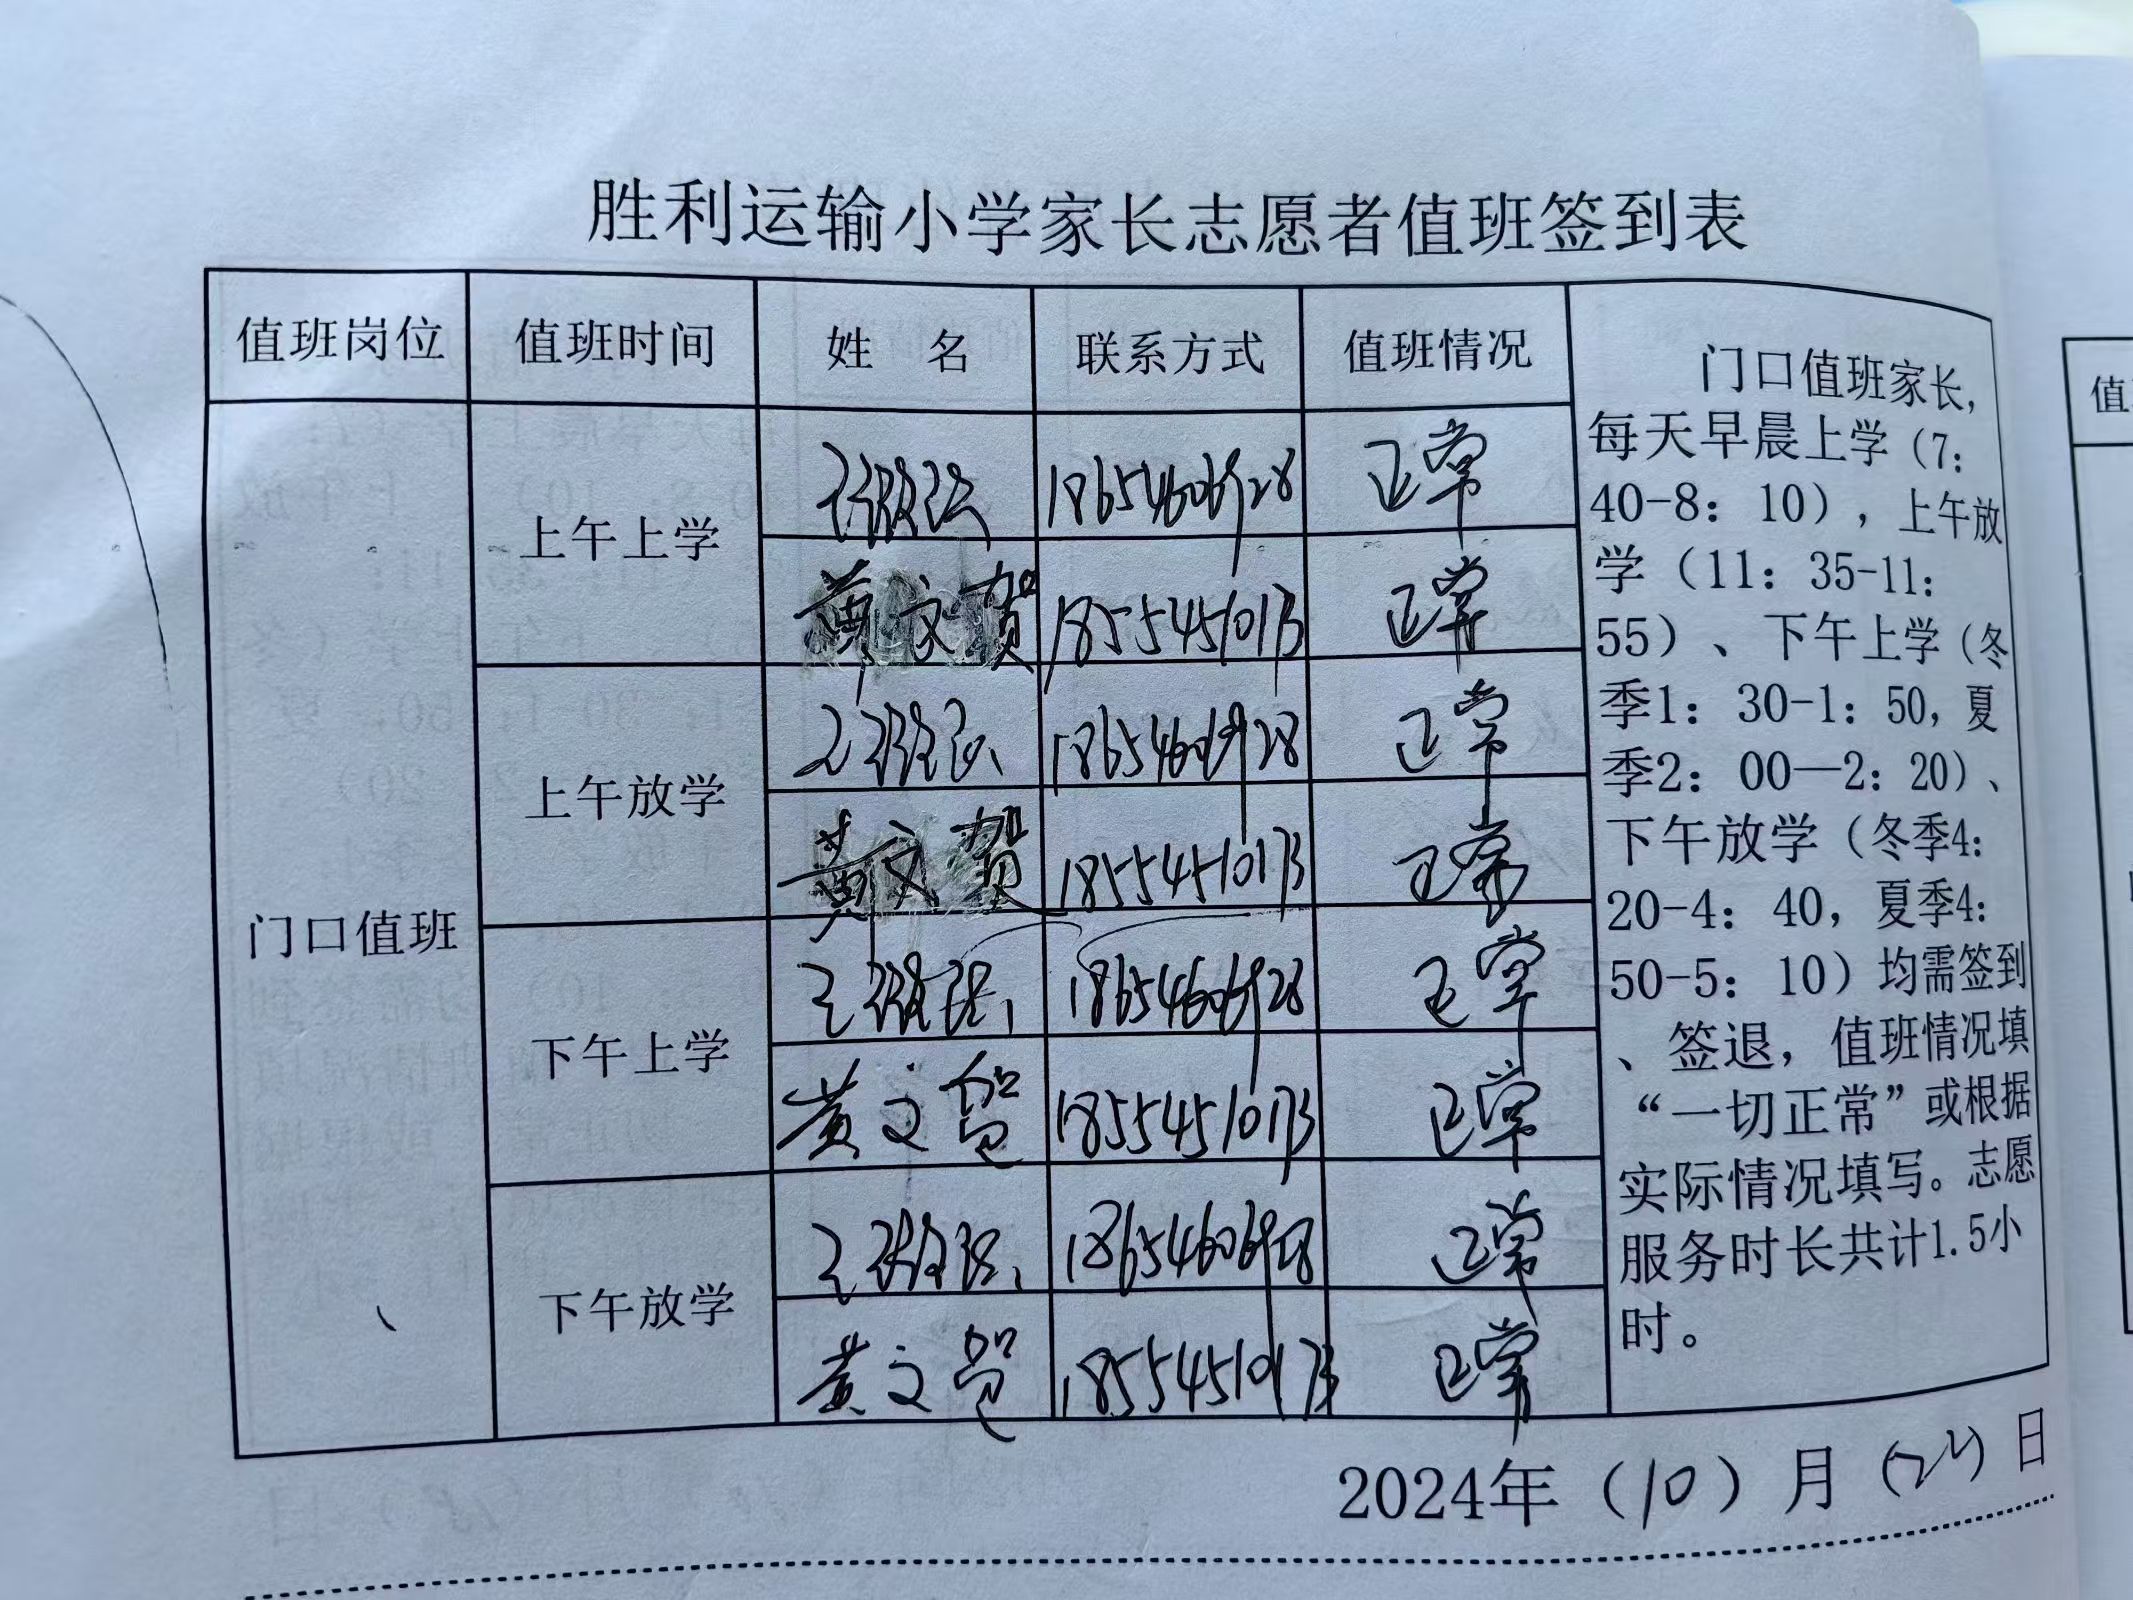 胜利运输小学家长志愿者值班签到表
值班岗位 值班时间 姓 名 联系方式 值班情况
门口值班
上午上学 18654606928 正常
黄文贺 18554510173 正常
上午放学 18654606928 正常
黄文贺 18554510173 正常
下午上学 18654606928 正常
黄文贺 18554510173 正常
下午放学 18654606928 正常
黄文贺 18554510173 正常
门口值班家长,
每天早晨上学（7:
40-8：10）, 上午放
学（11：35-11：
55）、下午上学（冬
季1：30-1：50, 夏
季2：00—2：20）、
下午放学（冬季4：
20-4：40, 夏季4：
50-5：10）均需签到
、签退, 值班情况填
“一切正常”或根据
实际情况填写。志愿
服务时长共计1.5小
时。
2024年（10）月（24）日
值